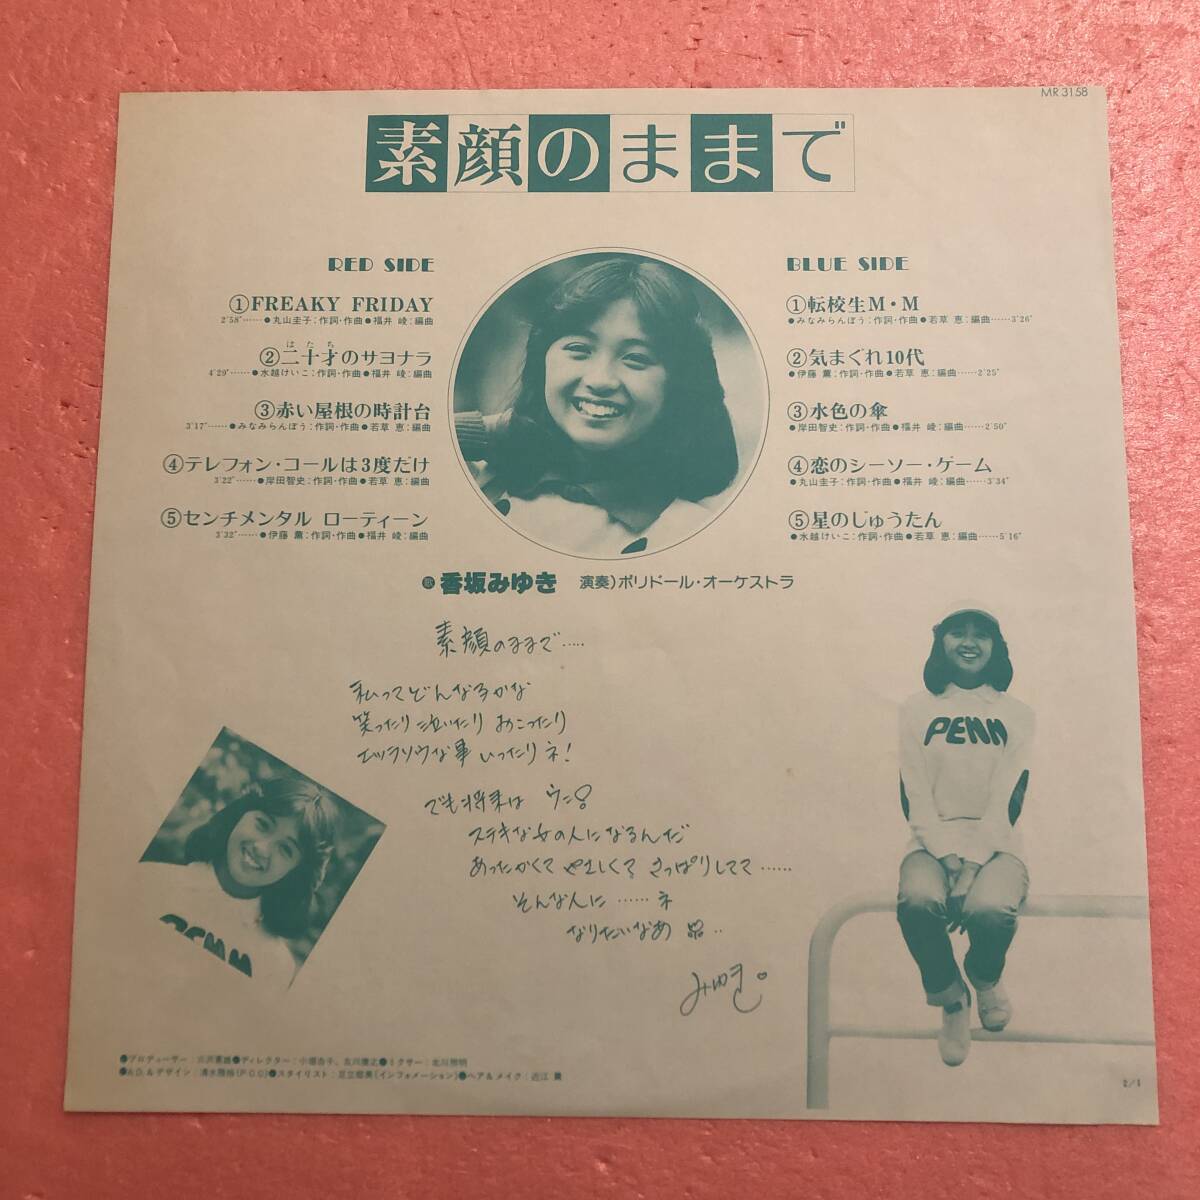 MR 3158
素顔のままで
RED SIDE
①FREAKY FRIDAY
2'58"……●丸山圭子：作詞・作曲●福井 崚：編曲
はたち
②二十才のサヨナラ
4'29"……●水越けいこ：作詞・作曲●福井 崚：編曲
③赤い屋根の時計台
3'17"……●みなみらんぼう：作詞・作曲●若草 恵：編曲
④テレフォン・コールは3度だけ
3'22"……●岸田智史：作詞・作曲●若草 恵：編曲
⑤センチメンタル ローティーン
3'32"……●伊藤 薫：作詞・作曲●福井 崚：編曲
BLUE SIDE
①転校生M・M
●みなみらんぼう：作詞・作曲●若草 恵：編曲……3'26"
②気まぐれ10代
●伊藤 薫：作詞・作曲●若草 恵：編曲……2'25"
③水色の傘
●岸田智史：作詞・作曲●福井 崚：編曲……2'50"
④恋のシーソー・ゲーム
●丸山圭子：作詞・作曲●福井 崚：編曲……3'34"
⑤星のじゅうたん
●水越けいこ：作詞・作曲●若草 恵：編曲……5'16"
歌 香坂みゆき 演奏)ポリドール・オーケストラ
素顔のままで……
私ってどんな子かな
笑ったり 泣いたり おこったり
エッラソウな事 いったりネ！
でも将来は ウン！
ステキな女の人になるんだ
あったかくて やさしくて さっぱりしてて……
そんな人に……ネ
なりたいなあ
みゆき。
PENN
PENN
●プロデューサー：●ディレクター：●ミクサー：
●A.D.&デザイン：(P.C.C)●スタイリスト：(インフォメーション)●ヘア&メイク：近江
2/1